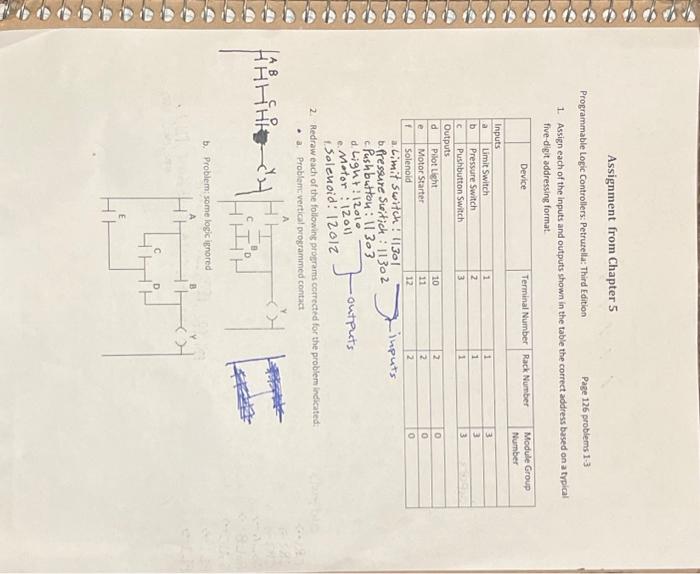 Assignment from Chapter 5
Programmable Logic Controllers: Petruzella: Third Edition Page 126 problems 1-3
1. Assign each of the inputs and outputs shown in the table the correct address based on a typical
five-digit addressing format.
Device Terminal Number Rack Number Module Group Number
Inputs
a Limit Switch 1 1 3
b Pressure Switch 2 1 3
c Pushbutton Switch 3 1 3
Outputs
d Pilot Light 10 2 0
e Motor Starter 11 2 0
f Solenoid 12 2 0
a. Limit switch: 11301
b. Pressure Switich: 11302
inputs
c. Pushbutton: 11303
d. Light: 12010
e. Motor: 12011
outputs
f. Solenoid: 12012
2. Redraw each of the following programs corrected for the problem indicated:
a. Problem: vertical programmed contact
A B C D Y
A Y
B
C D
b. Problem: some logic ignored
A B Y
C D
E